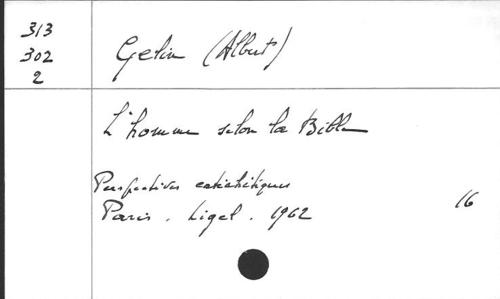 313
302
2
Gelin (Albert)
L'homme selon la Bible
Perspectives catéchétiques
Paris. Ligel. 1962
16